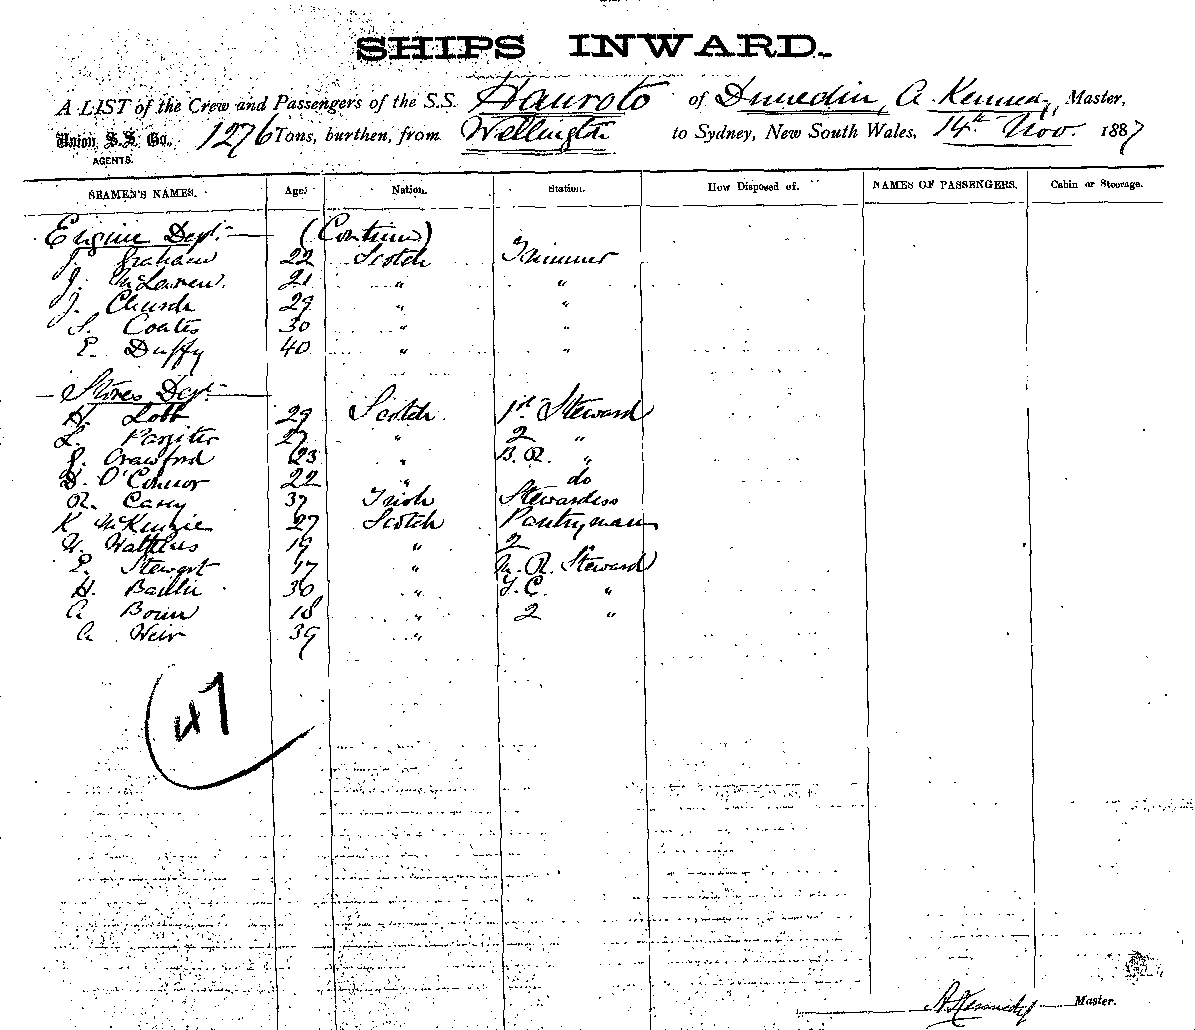 SHIPS INWARD.
A LIST of the Crew and Passengers of the S.S. Hauroto of Dunedin, A. Kennedy, Master,
Union S.S. Co., 1276 Tons, burthen, from Wellington to Sydney, New South Wales, 14th Nov. 1887
AGENTS.
SEAMEN'S NAMES. Age. Nation. Station. How Disposed of. NAMES OF PASSENGERS. Cabin or Steerage.
Engine Dept. (Continu)
J. Graham 22 Scotch Trimmer
J. McLaren 21 " "
J. Church 29 " "
S. Coates 30 " "
E. Duffy 40 " "
Stores Dept.
H. Lobb 29 Scotch 1st Steward
L. Pargiter 27 " 2 "
J. Crawford 23 " B.R. "
D. O'Connor 22 " do
R. Casey 37 Irish Stewardess
K McKenzie 27 Scotch Pantryman
W. Watkins 19 " 2 "
E. Stewart 17 " M.R. Steward
H. Baillie 30 " F.C. "
A 18 " 2 "
A Weir 39 "
47
A. Kennedy Master.